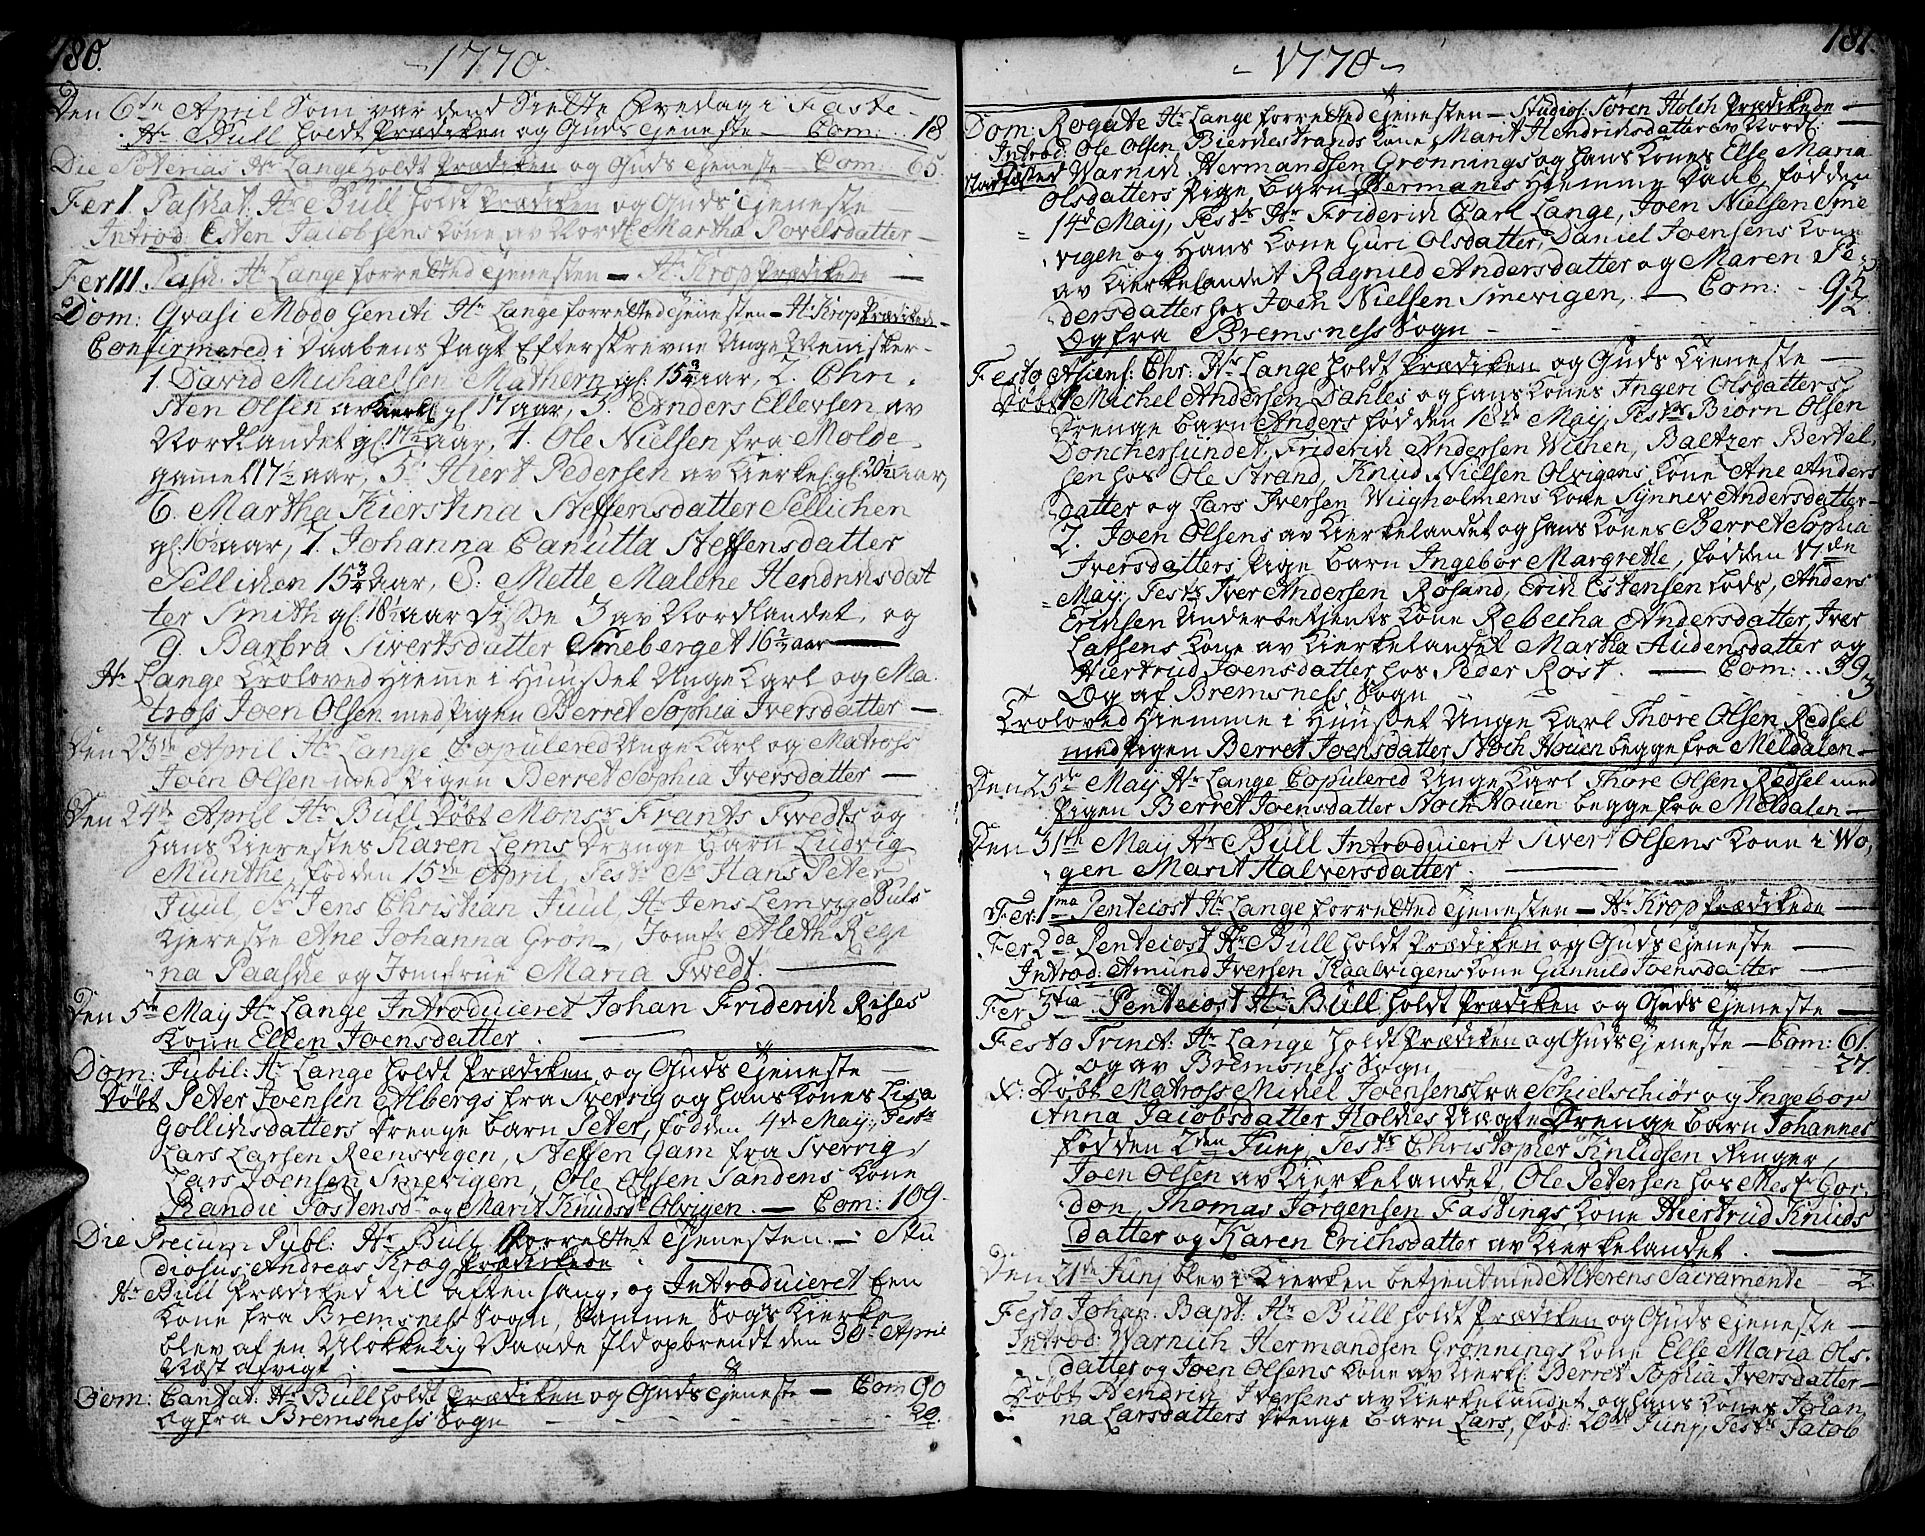 180.
-1770.
Den 6te April Som var dend Siette Fredag i Faste-
Hr Bull holdt Prædiken og Guds Tjeneste - Com: 18
Die Viridium Hr Lange holdt Prædiken og Guds Tjeneste - Com: 65.
Fer I. Paschat: Hr Bull holdt Prædiken og Guds Tjeneste
Introd: Esten Jacobsens Kone av Nordl: Martha Povelsdatter -
Fer III. Pasch. Hr Lange forretted Tjenesten - Hr. Krop Prædikede -
Dom: Qvasi Modo Geniti Hr Lange forretted Tjenesten - Hr Krop Prædiked-
Confirmered i Daabens Pagt Efterskrevne Unge Mennisker-
1. David Michaelsen Mathern gl: 15 3/4 aar, 2. Chri-
sten Olsen av Kierkl: gl 17 aar, 3. Anders Ellevsen av
Nordlandet gl: 17 1/2 aar, 4. Ole Nielsen fra Molde
gamel 17 1/2 aar, 5. Hiert Pedersen av Kierkel: gl: 20 1/2 aar,
6. Martha Kierstina Steffensdatter Sellichen
gl: 16 1/2 aar, 7. Johanna Canutta Steffensdatter
Sellichen 15 3/4 aar, 8: Mette Malene Hendrichsdat
ter Smith gl: 18 1/2 aar disse 3 av Nordlandet, og
9. Barbra Sivertsdatter Smeberget 16 1/2 aar
Hr Lange Troloved Hieme i Huuset Unge Karl og Ma-
tross Joen Olsen med Pigen Berret Sophia Iversdatter -
Den 23de April Hr Lange Copulered Unge Karl og Matross
Joen Olsen med Pigen Berret Sophia Iversdatter -
Den 24de April Hr Bull Døbt Monsr Frants Twedts og
Hans Kierestes Karen Lems Drenge Barn Ludvig
Munthe, fød den 15de April, Test: Sr Hans Peter
Juul, Sr Jens Christian Juul, Hr Jens Lemvig Buls
Kiereste Ane Johanna Grøn, Jomfr Aleth Regi
na Paaske og Jomfrue Maria Twedt.
Den 5te May Hr Lange Introduieret Johan Friderich Rises
Kone Ellen Joensdatter.
Dom: Jubil: Hr Lange holdt Prædiken og Guds Tjeneste -
Døbt Peter Joensen Ahlbergs fra Sverrig og hans Kones Lisa
Gollichsdatters Drenge Barn Peter, fød den 4de May, Test:
Lars Larsen Reensvigen, Steffen Gam fra Sverrig,
Lars Joensen Smevigen, Ole Olsen Sandens Kone
Randie Tostensd: og Marit Knudsd: Olvigen. - Com: 109.
Die Precum Publ: Hr Bull forrettet Tjenesten - Stu
diosus Andreas Krog Prædikede
Hr Bull Prædiked til Aftensang, og Introduieret Een
Kone fra Bremsness Sogn, Samme Sogs Kierke
blev af en Ulokkelig Vaade Ild opbrendt den 30te April
Næst afvigt.
Dom: Cantat: Hr Bull holdt Prædiken og Guds Tjeneste - Com 90
Og fra Bremsness Sogn - - - - 20.
181.
-1770-
Dom: Rogate Hr Lange forretted Tjenesten - Studios: Søren Holch Prædikede -
Introd: Ole Olsen Bierkestrands Kone Marit Hendrichsdatter av Nordl:
Stadfæsted Warnich Hermandsen Grønnings og hans Kones Else Maria
Olsdatters Pige Barn Hermanes Hiemme Daab, fød den
14de May, Test: Hr Friderich Carl Lange, Joen Nielsen Sme
vigen og Hans Kone Guri Olsdatter, Daniel Joensens Kone
av Kierkelandet Ragnild Andersdatter og Maren Pe-
dersdatter hos Joen Nielsen Smevigen, - Com: - 95
Og fra Bremsness Sogn - - - - 12.
Festo Ascens: Chr: Hr Lange holdt Prædiken og Guds Tjeneste -
Døbt 1. Michel Andersen Dahles og hans Kones Ingeri Olsdatters
Drenge Barn Anders fød den 18de May, Test: Biørn Olsen
Donchersundet, Friderich Andersen Winen, Baltzer Bertel
sen hos Ole Strand, Knud Nielsen Olvigens Kone Ane Anders
datter og Lars Iversen Weigholmens Kone Synnev Andersdatter-
2. Joen Olsens av Kierkelandet og hans Kones Berret Sophia
Iversdatters Pige Barn Ingebor Margrethe, fød den 17de
May, Test: Iver Andersen Røsand, Erich Estensen Lods, Anders
Erichsen Underbetjents Kone Rebecha Andersdatter, Iver
Lassens Kone av Kierkelandet Martha Audensdatter og
Hiertrud Joensdatter hos Peder Rost. - Com: - 39
Og af Bremsness Sogn 3
Troloved Hiemme i Huuset Unge Karl Thore Olsen Redsel
med Pigen Berret Joensdatter Stoch Houen begge fra Meldalen -
Den 25de May Hr Lange Copulered Unge Karl Thore Olsen Redsel med
Pigen Berret Joensdatter Stoch Houen begge fra Meldalen -
Den 31te May Hr Bull Introduierit Sivert Olsens Kone i Wo,
gen Marit Halversdatter.
Fer: 1ma Penteiost Hr Lange forretted Tjenesten - Hr Krop Prædikede -
Fer 2da Penteiost Hr Bull holdt Prædiken og Guds Tjeneste -
Introd: Amund Iversen Kaalvigens Kone Gunnild Joensdatter -
Fer 3tia Penteiost Hr Bull holdt Prædiken og Guds Tjeneste -
Festo Trinit: Hr Lange holdt Prædiken og Guds Tjeneste - Com: 61.
og av Bremsness Sogn - - - 27.
Døbt Matross Michel Joensens fra Schielschiør og Ingebor
Anna Jacobsdatter Holches Uægte Drenge Barn Johannes
fød den 2den Junj, Test: Christopher Knudsen Ringer,
Joen Olsen av Kierkelandet, Ole Petersen hos Mestr Gor-
don, Thomas Jørgensen Fastings Kone Hiertrud Knuds
datter og Karen Erichsdatter av Kierkelandet.
Den 21de Junj blev i Kierken betjent med Alterens Sacramente - 2.
Festo Johan: Bapt: Hr Bull holdt Prædiken og Guds Tjeneste -
Introd: Warnich Hermandsen Grønnings Kone Else Maria Ols-
datter og Joen Olsens Kone av Kierkl: Berret Sophia Iversdatter -
Døbt Hendrich Iversens av Kierkelandet og hans Kones Johan
na Larsdatters Drenge Barn Lars, fød: 20de Junj, Test: Jacob